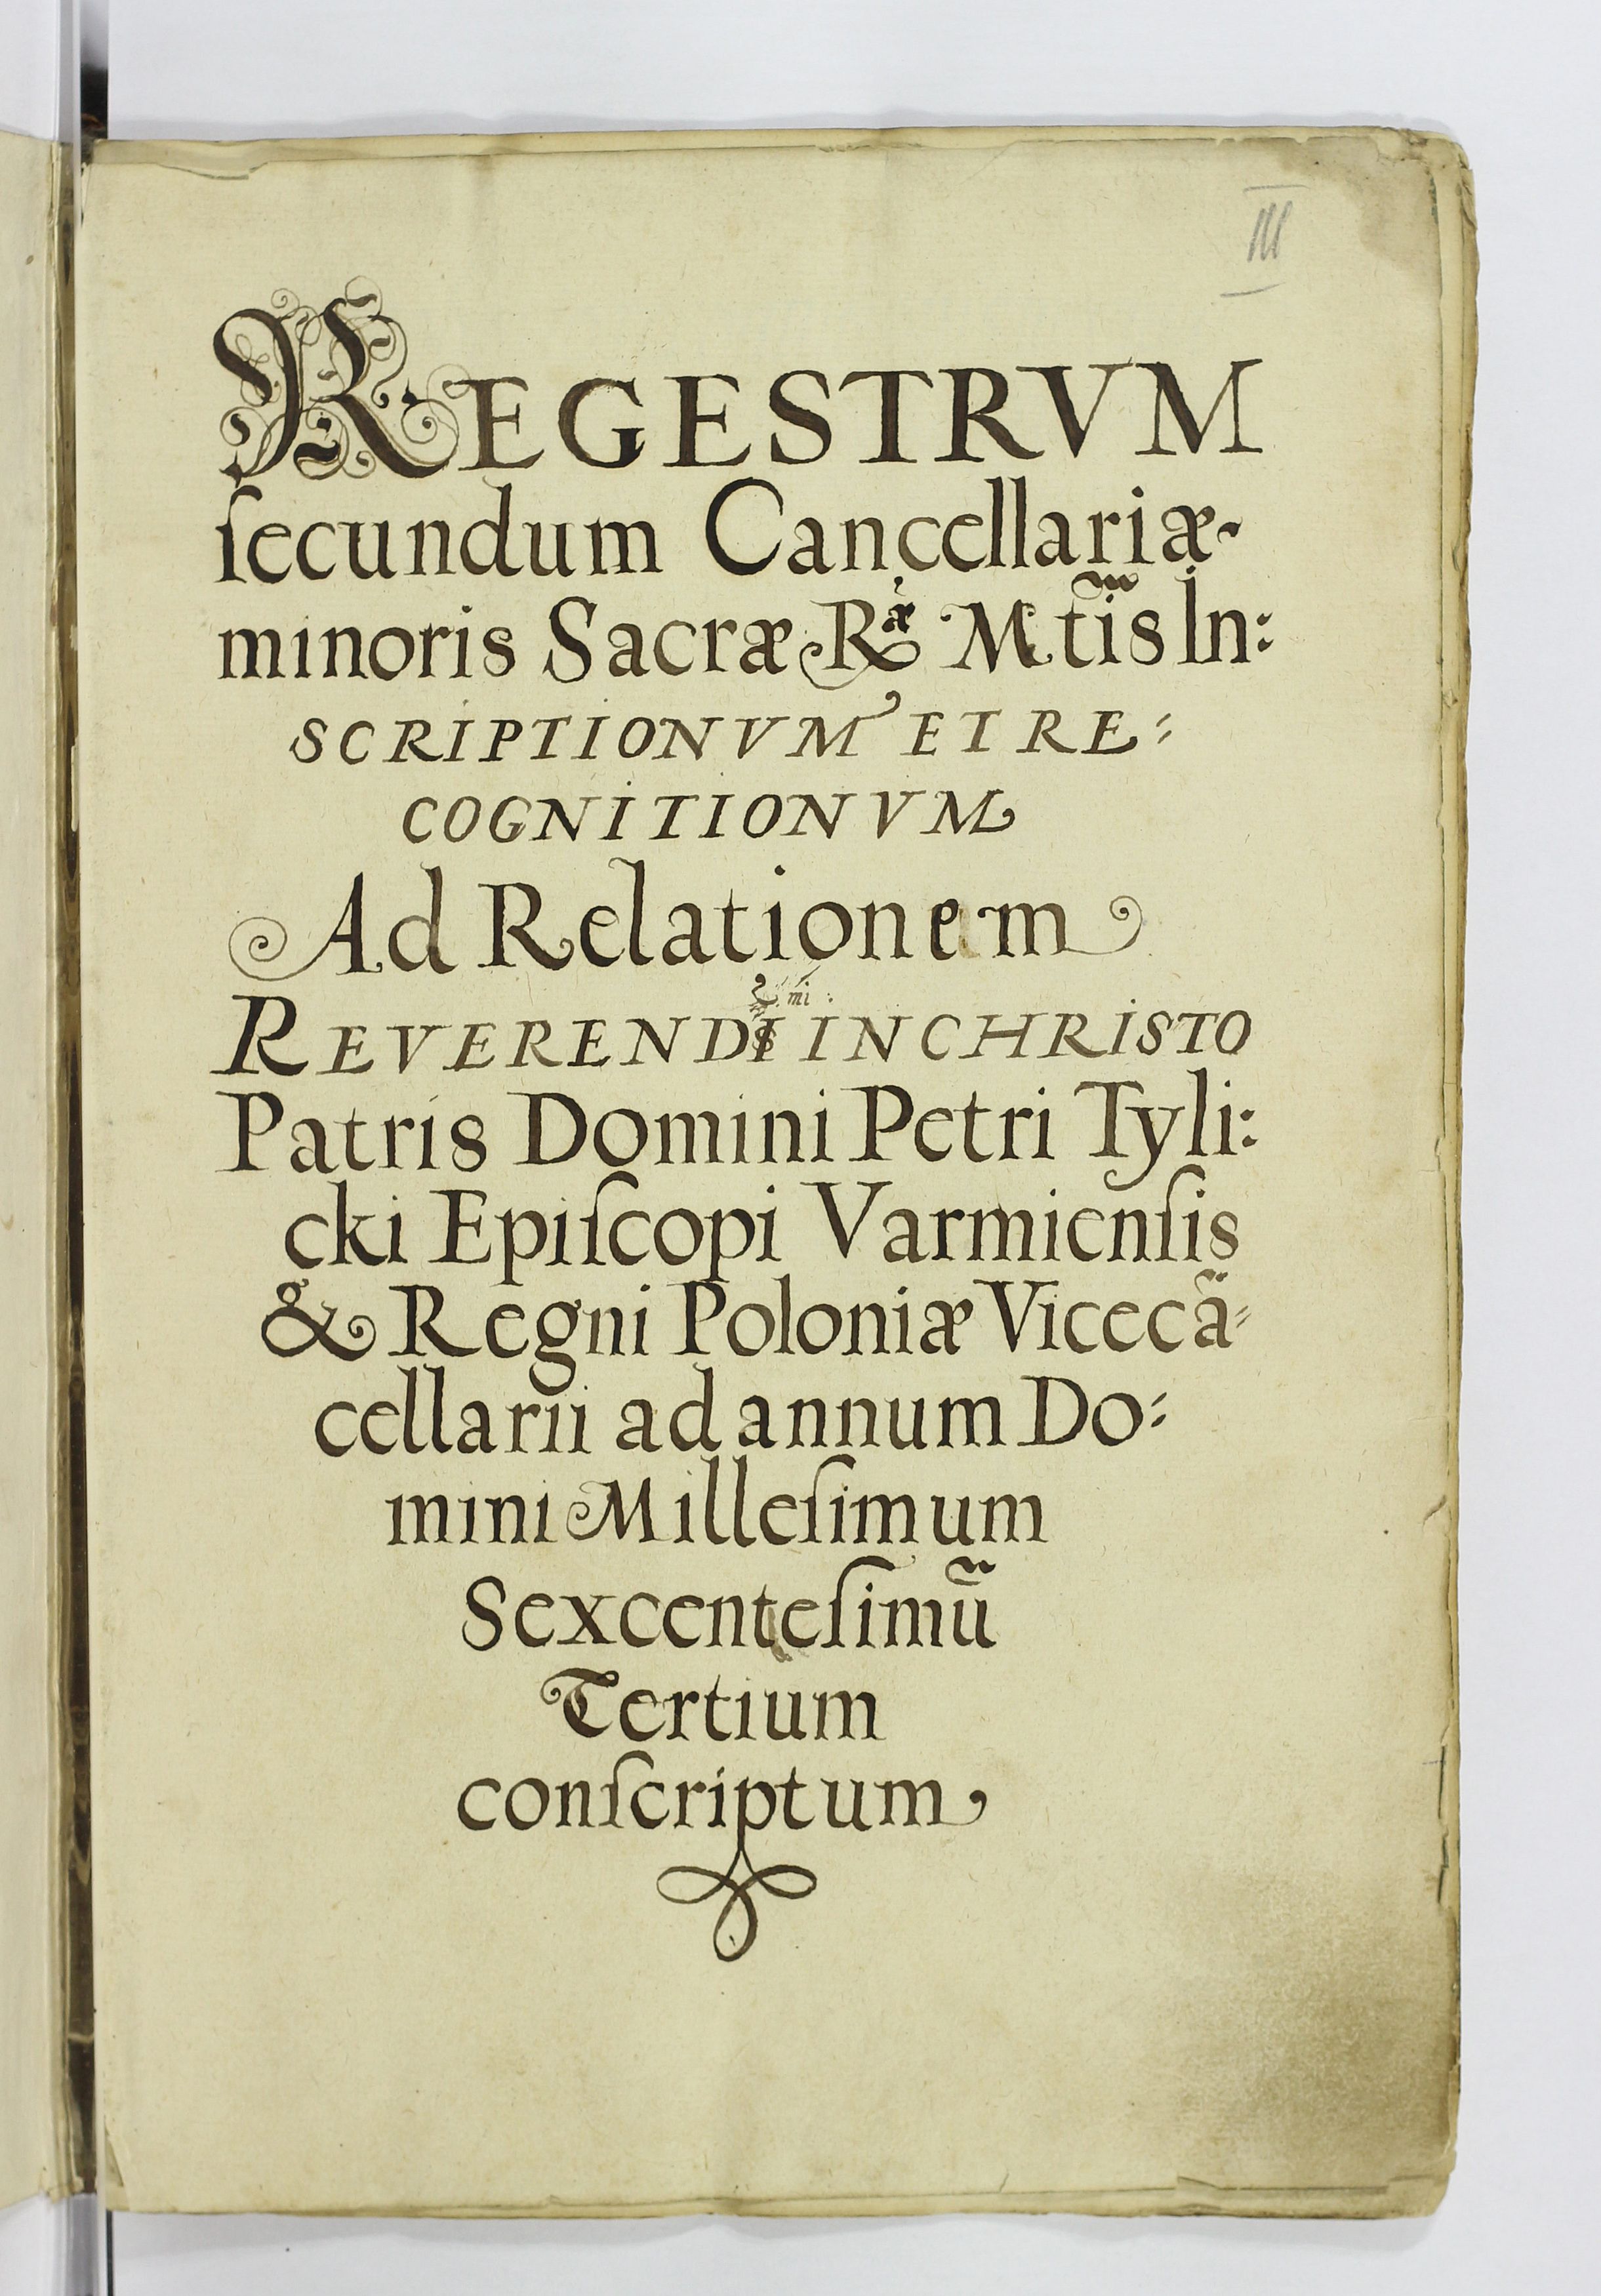 III
REGESTRVM
ſecundum Cancellariæ
minoris Sacræ Ræ Mtis In:
SCRIPTIONVM ET RE:
COGNITIONVM
Ad Relationem
REVERENDI mi: IN CHRISTO
Patris Domini Petri Tyli:
cki Epiſcopi Varmienſis
& Regni Poloniæ Vicecã:
cellarii ad annum Do:
mini Milleſimum
Sexcenteſimũ
Tertium
conſcriptum